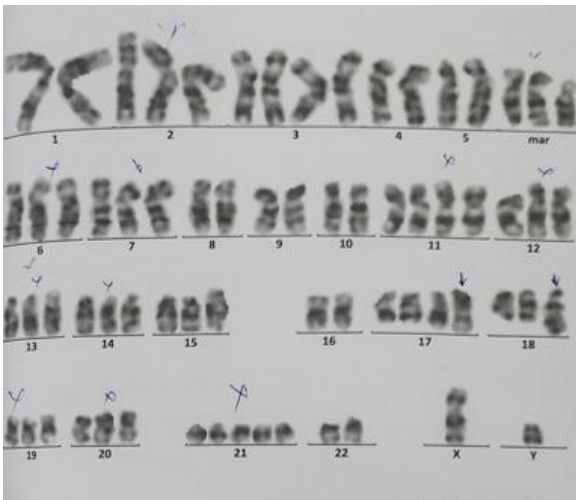 1 2 3 4 5 mar
6 7 8 9 10 11 12
13 14 15 16 17 18
19 20 21 22 X Y